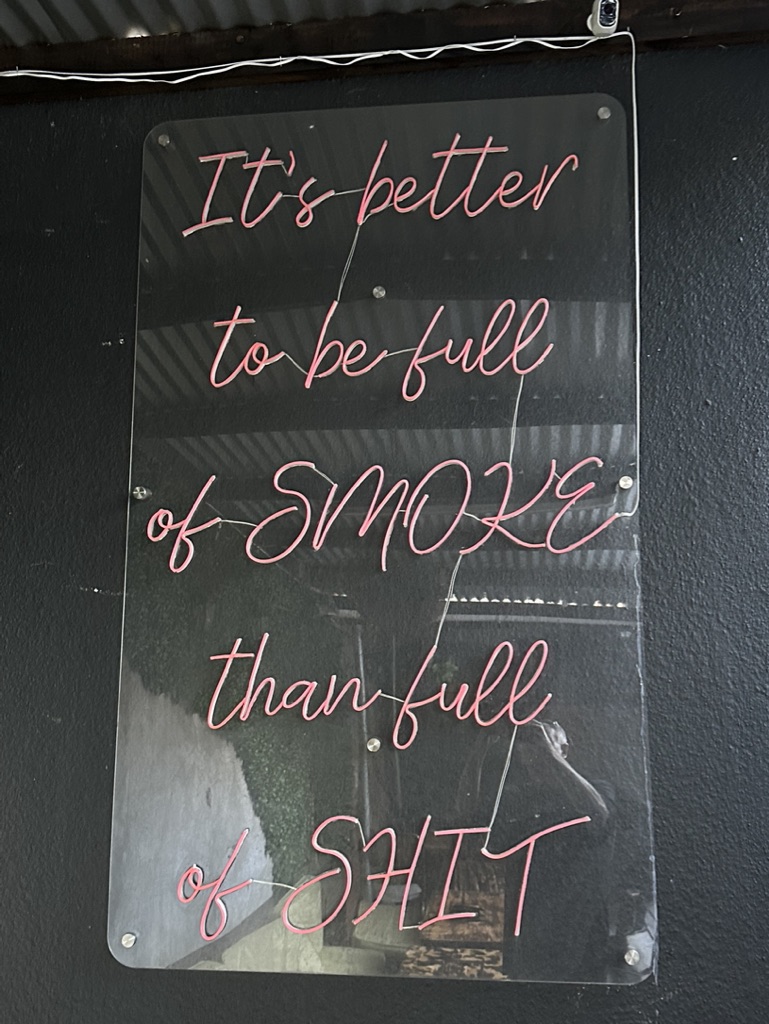 It's better
to be full
of SMOKE
than full
of SHIT